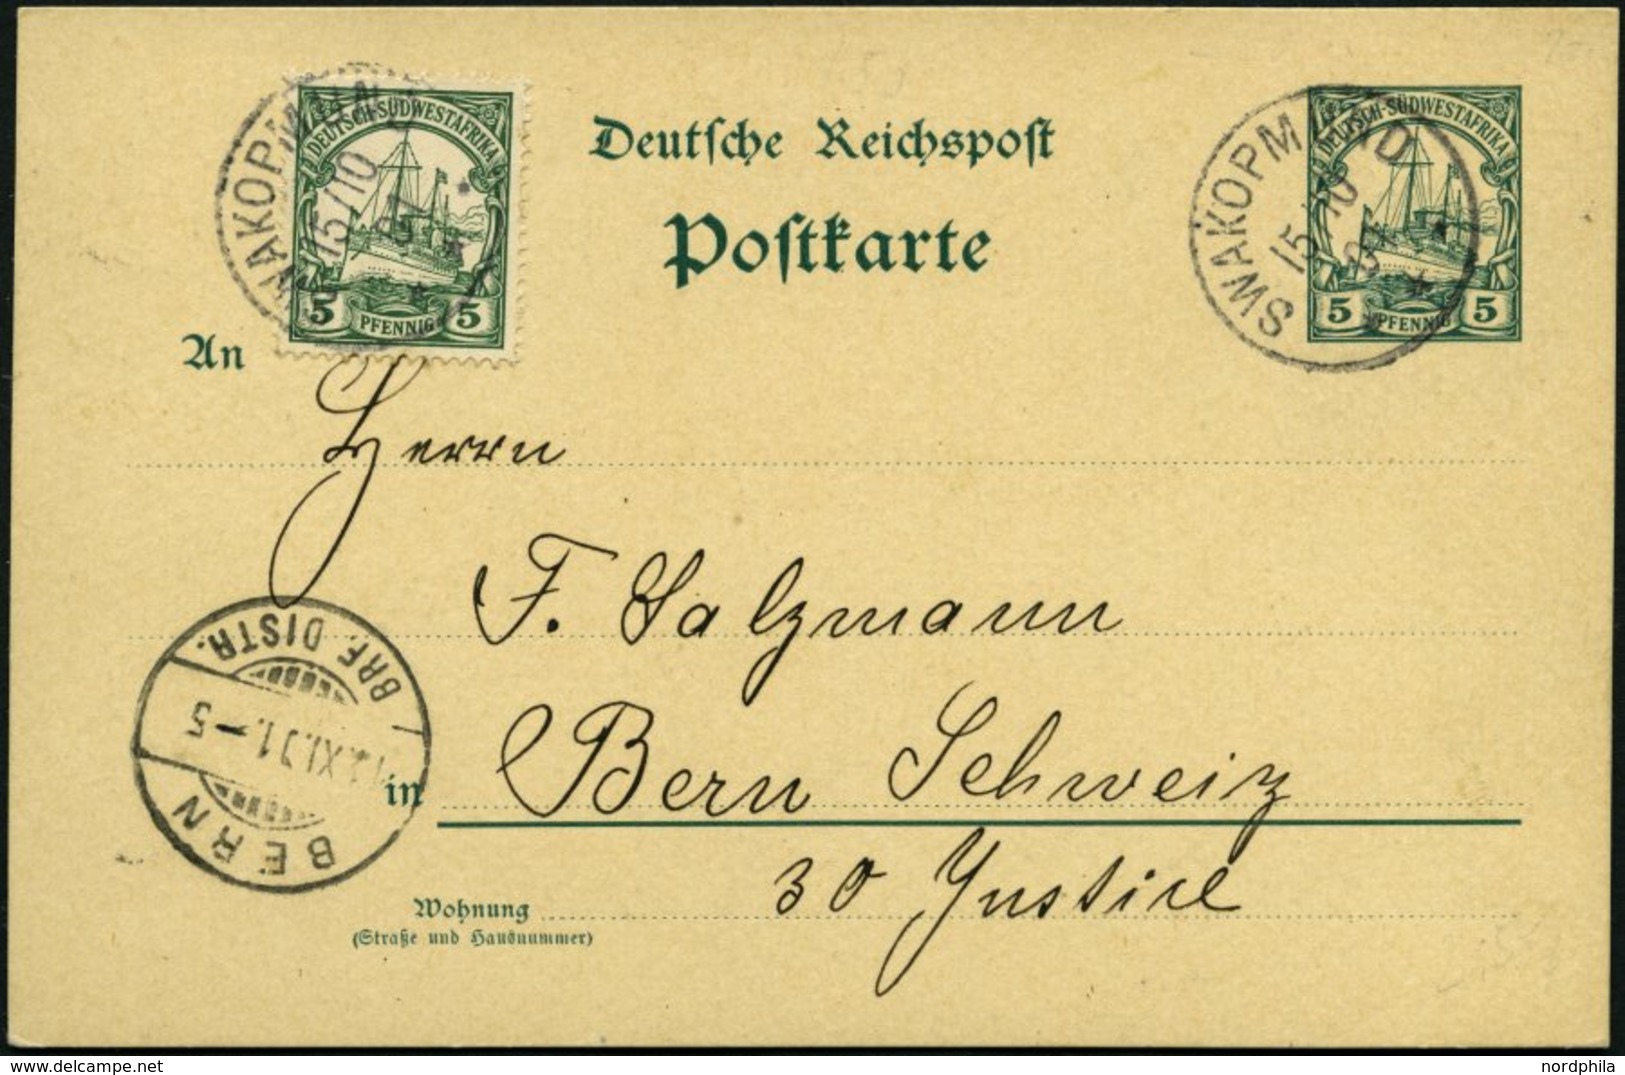 SWAKOPMUND
15/10
01
DEUTSCH-SÜDWESTAFRIKA
5 PFENNIG 5
Deutsche Reichspost
Postkarte
SWAKOPMUND
15/10
01
DEUTSCH-SÜDWESTAFRIKA
5 PFENNIG 5
An
Herrn
F. Salzmann
in Bern Schweiz
30 Justice
Wohnung
(Straße und Hausnummer)
BERN
XI.01.-5
BRF. DISTR.
nordphila